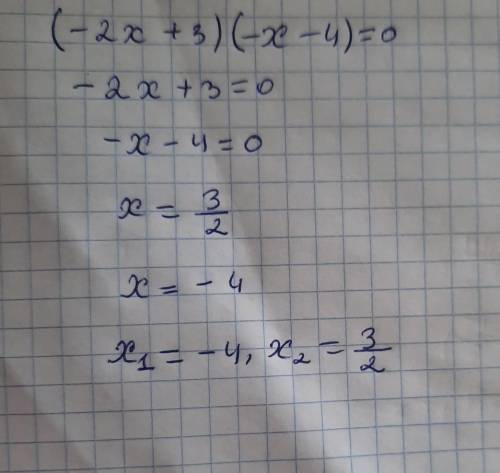 (-2x+3)(-x-4)=0
-2x+3=0
-x-4=0
x = 3/2
x = -4
x₁ = -4, x₂ = 3/2